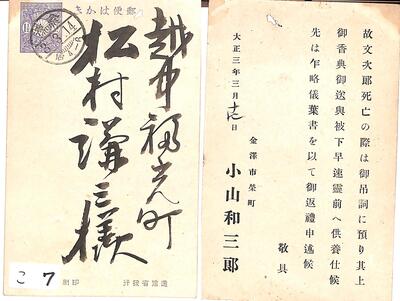 郵便はかき
越中福光町
松村謙三様
こ7
逓信省發行
印刷
故文次郎死亡の際は御吊詞に預り其上
御香典御送與被下早速靈前へ供養仕候
先は乍略儀葉書を以て御返禮申述候
敬具
大正三年三月
金澤市榮町
小山和三郎